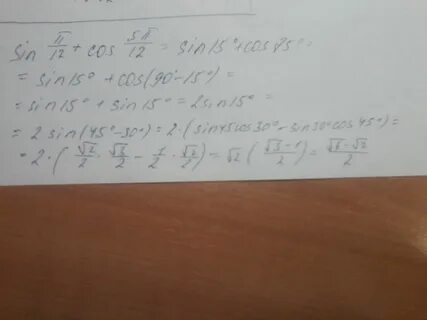 sin π/12 + cos 5π/12 = sin15° + cos75° =
= sin15° + cos(90° - 15°) =
= sin15° + sin15° = 2sin15° =
= 2 sin(45° - 30°) = 2 · (sin45cos30° - sin30°cos45°) =
= 2 · (√2/2 · √3/2 - 1/2 · √2/2) = √2 (√3 - 1/2) = √6 - √2/2